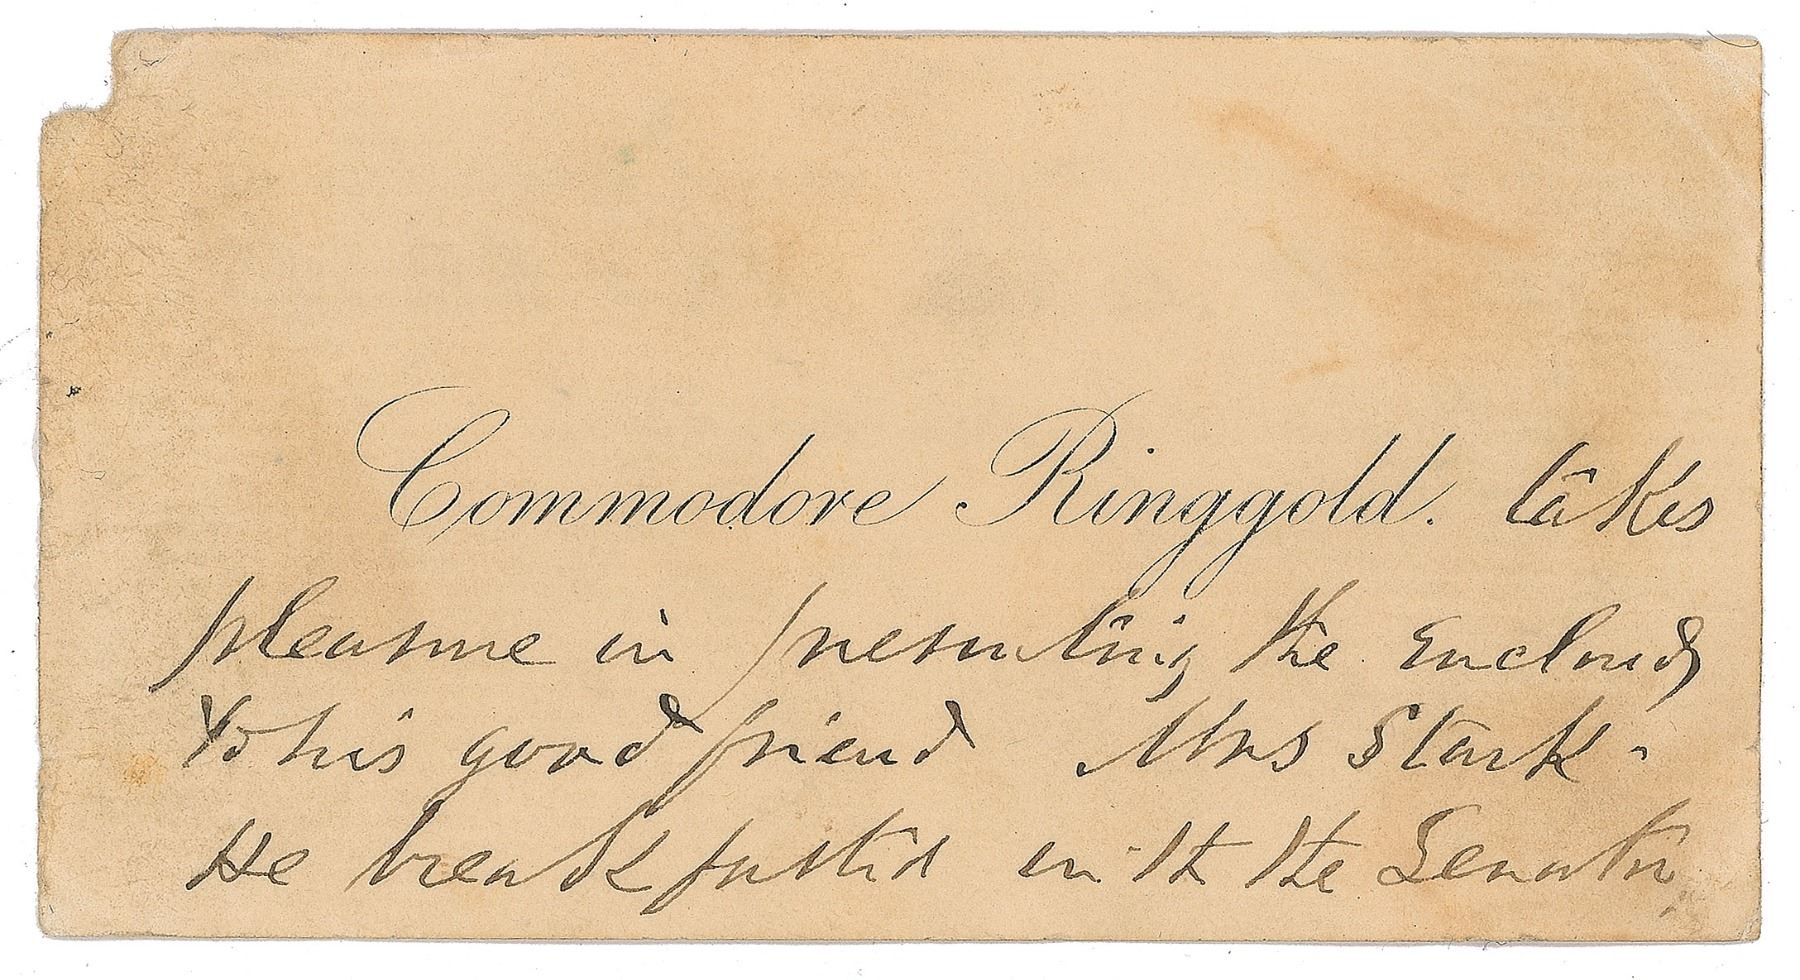 Commodore Ringgold. takes
pleasure in presenting the Enclosed
to his good friend Mrs Stark.
He breakfasted with the Senator